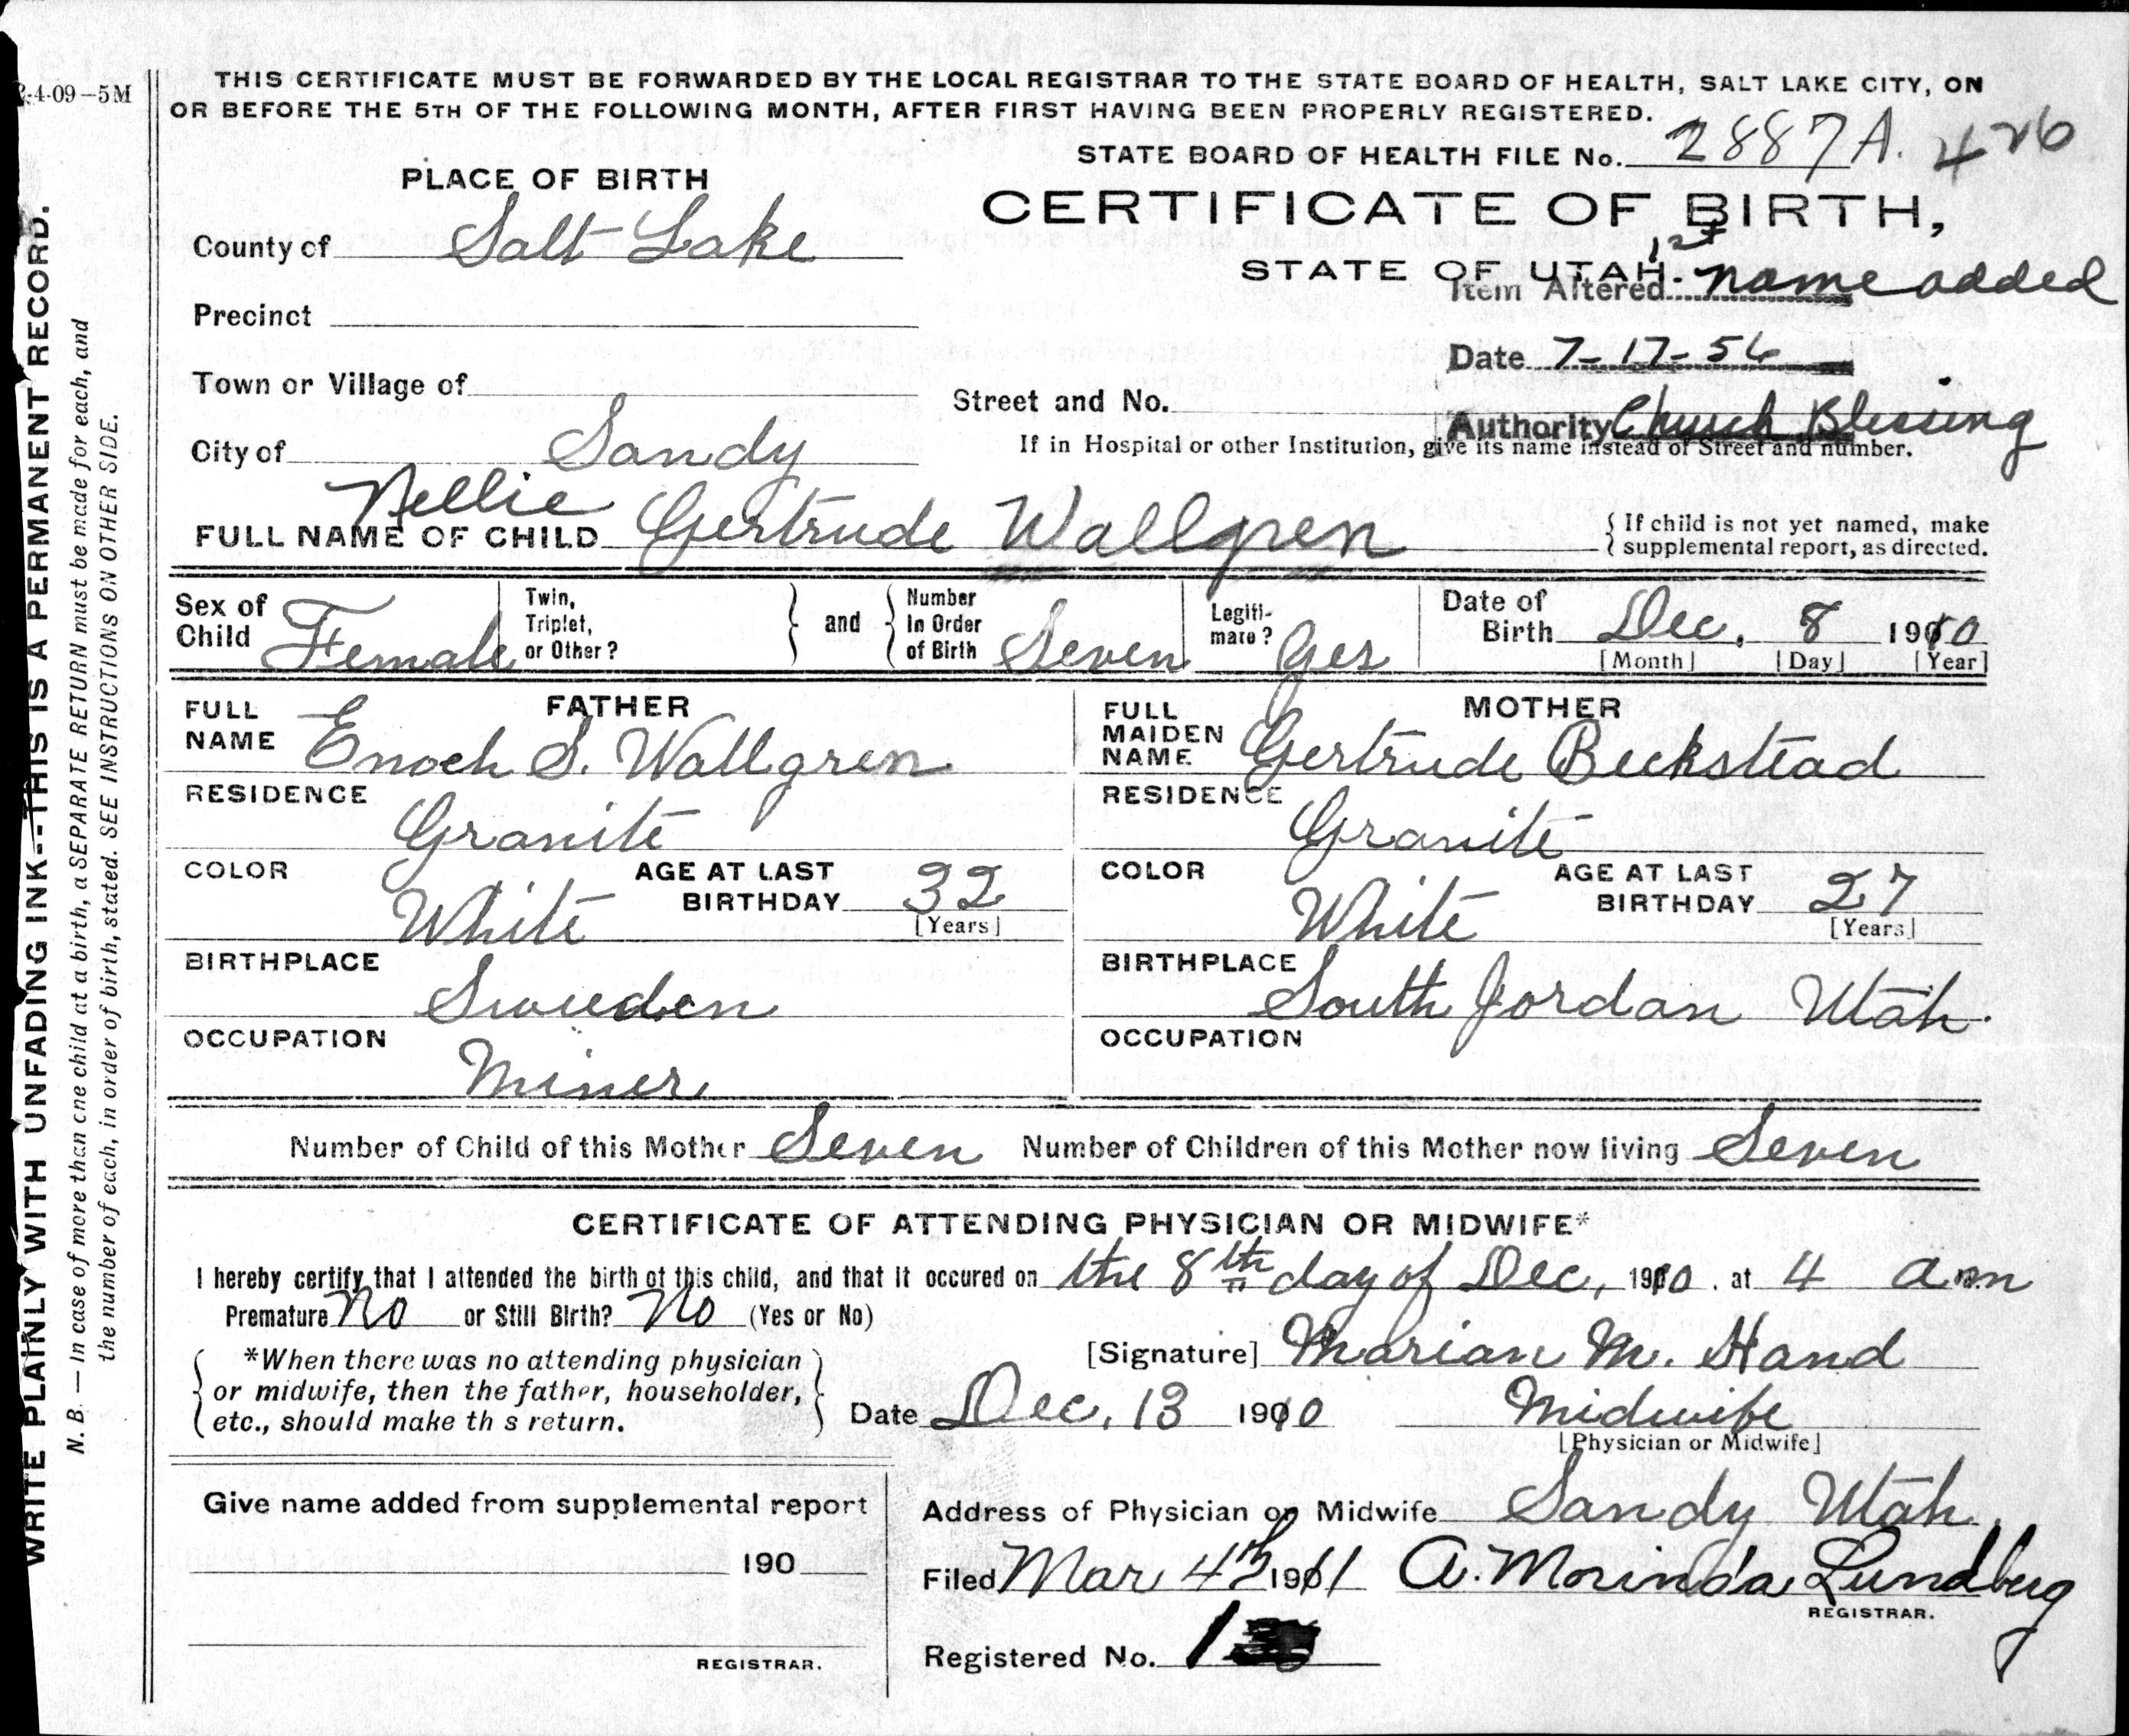 2-4-09-5M
THIS CERTIFICATE MUST BE FORWARDED BY THE LOCAL REGISTRAR TO THE STATE BOARD OF HEALTH, SALT LAKE CITY, ON
OR BEFORE THE 5TH OF THE FOLLOWING MONTH, AFTER FIRST HAVING BEEN PROPERLY REGISTERED.
STATE BOARD OF HEALTH FILE No. 2887A. 426
PLACE OF BIRTH
CERTIFICATE OF BIRTH,
County of Salt Lake
STATE OF UTAH.
Item Altered 1st name added
Precinct
Date 7-17-56
Town or Village of
Street and No.
Authority Church Blessing
City of Sandy
If in Hospital or other Institution, give its name instead of Street and number.
FULL NAME OF CHILD Nellie Gertrude Wallgren
If child is not yet named, make
supplemental report, as directed.
Sex of Child Female
Twin, Triplet, or Other? and Number In Order of Birth Seven
Legitimate? Yes
Date of Birth Dec. 8 1910
[Month] [Day] [Year]
FATHER
FULL NAME Enoch S. Wallgren
RESIDENCE
Granite
COLOR White AGE AT LAST BIRTHDAY 32
[Years]
BIRTHPLACE
Sweden
OCCUPATION
Miner
MOTHER
FULL MAIDEN NAME Gertrude Beckstead
RESIDENCE
Granite
COLOR White AGE AT LAST BIRTHDAY 27
[Years]
BIRTHPLACE
South Jordan Utah.
OCCUPATION
Number of Child of this Mother Seven Number of Children of this Mother now living Seven
CERTIFICATE OF ATTENDING PHYSICIAN OR MIDWIFE*
I hereby certify that I attended the birth of this child, and that it occured on the 8th day of Dec, 1910. at 4 a.m
Premature No or Still Birth? No (Yes or No)
*When there was no attending physician
or midwife, then the father, householder,
etc., should make th s return.
[Signature] Marian M. Hand
Date Dec, 13 1910 Midwife
[Physician or Midwife]
Give name added from supplemental report
190
REGISTRAR.
Address of Physician or Midwife Sandy Utah.
Filed Mar 4th 1911 A. Morinda Lundberg
REGISTRAR.
Registered No. 1
WRITE PLAINLY WITH UNFADING INK--THIS IS A PERMANENT RECORD.
N. B. — In case of more than one child at a birth, a SEPARATE RETURN must be made for each, and
the number of each, in order of birth, stated. SEE INSTRUCTIONS ON OTHER SIDE.